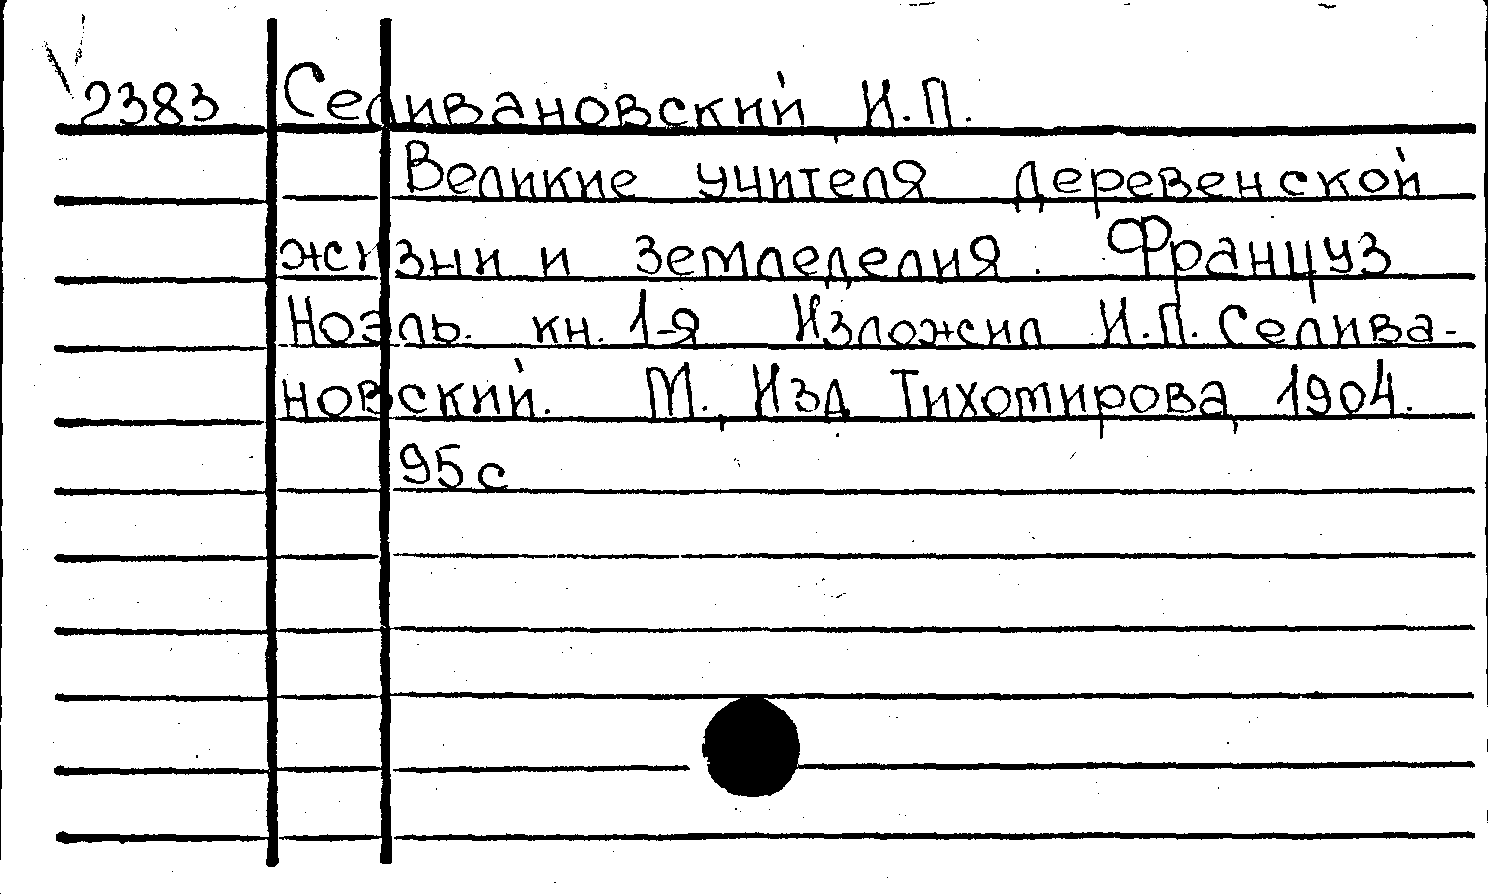 2383 Селивановский И.П.
Великие учителя деревенской
жизни и земледелия. Француз
Ноэль. кн. 1-я Изложил И.П. Селива-
новский. М., Изд Тихомирова, 1904.
95 с